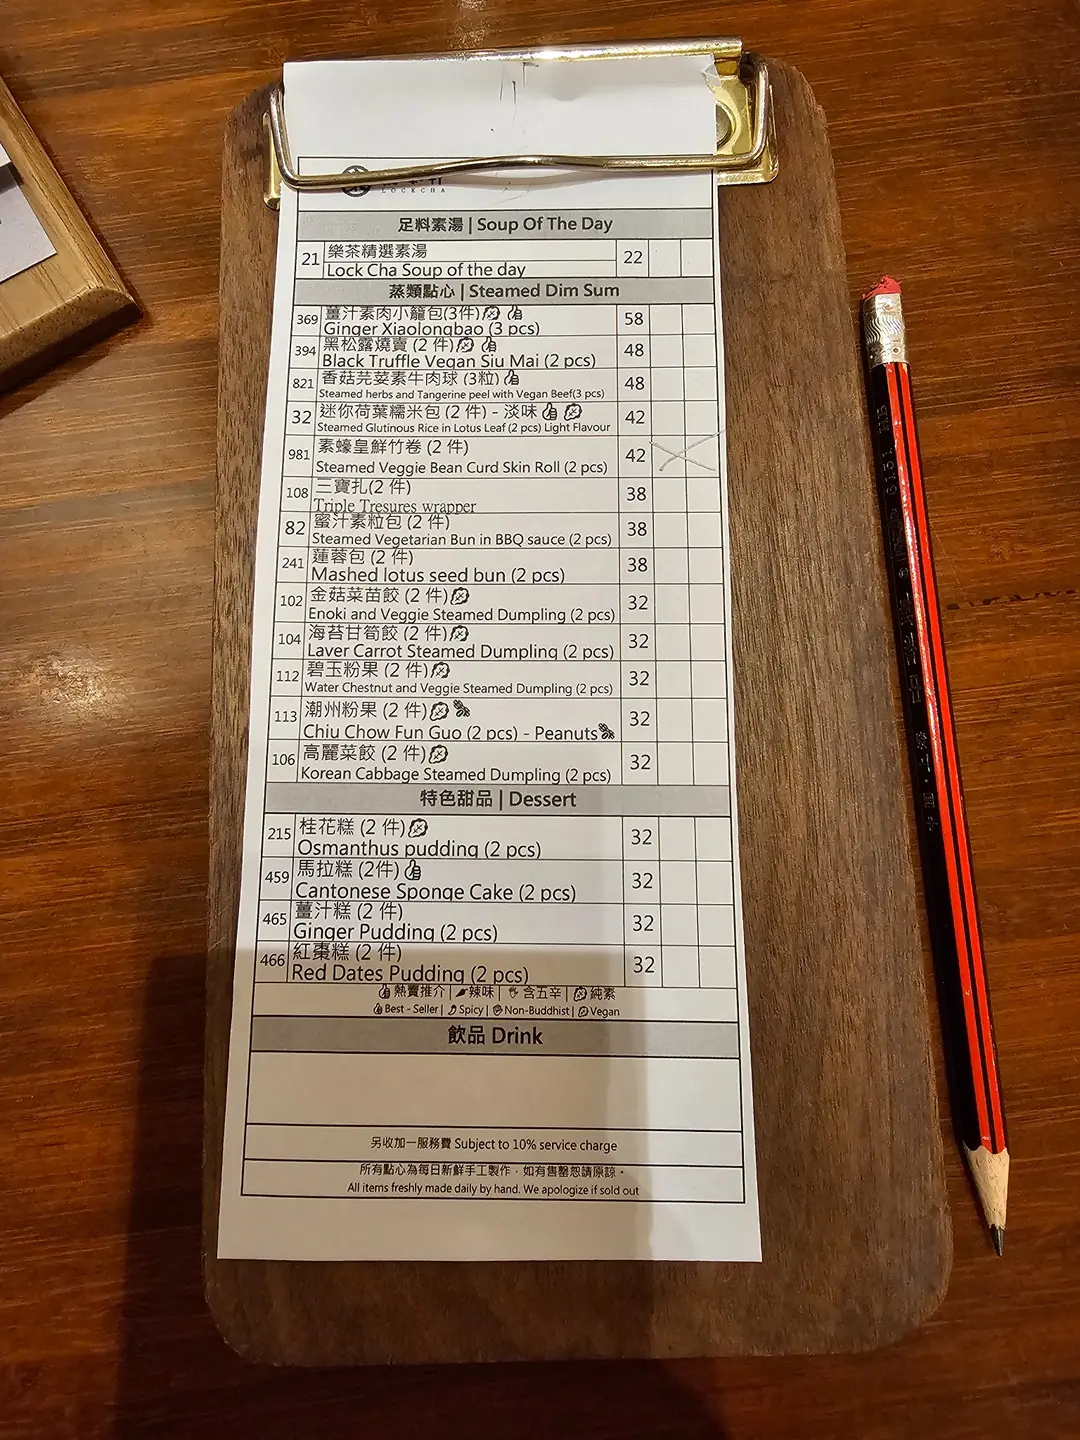 LOCKCHA
足料素湯 | Soup Of The Day
21 樂茶精選素湯 22
Lock Cha Soup of the day
蒸類點心 | Steamed Dim Sum
369 薑汁素肉小籠包(3件) 58
Ginger Xiaolongbao (3 pcs)
394 黑松露燒賣 (2 件) 48
Black Truffle Vegan Siu Mai (2 pcs)
821 香菇芫荽素牛肉球 (3粒) 48
Steamed herbs and Tangerine peel with Vegan Beef(3 pcs)
32 迷你荷葉糯米包 (2 件) - 淡味 42
Steamed Glutinous Rice in Lotus Leaf (2 pcs) Light Flavour
981 素蠔皇鮮竹卷 (2 件) 42
Steamed Veggie Bean Curd Skin Roll (2 pcs)
108 三寶扎(2 件) 38
Triple Tresures wrapper
82 蜜汁素粒包 (2 件) 38
Steamed Vegetarian Bun in BBQ sauce (2 pcs)
241 蓮蓉包 (2 件) 38
Mashed lotus seed bun (2 pcs)
102 金菇菜苗餃 (2 件) 32
Enoki and Veggie Steamed Dumpling (2 pcs)
104 海苔甘筍餃 (2 件) 32
Laver Carrot Steamed Dumpling (2 pcs)
112 碧玉粉果 (2 件) 32
Water Chestnut and Veggie Steamed Dumpling (2 pcs)
113 潮州粉果 (2 件) 32
Chiu Chow Fun Guo (2 pcs) - Peanuts
106 高麗菜餃 (2 件) 32
Korean Cabbage Steamed Dumpling (2 pcs)
特色甜品 | Dessert
215 桂花糕 (2 件) 32
Osmanthus pudding (2 pcs)
459 馬拉糕 (2件) 32
Cantonese Sponge Cake (2 pcs)
465 薑汁糕 (2 件) 32
Ginger Pudding (2 pcs)
466 紅棗糕 (2 件) 32
Red Dates Pudding (2 pcs)
熱賣推介 | 辣味 | 含五辛 | 純素
Best - Seller | Spicy | Non-Buddhist | Vegan
飲品 Drink
另收加一服務費 Subject to 10% service charge
所有點心為每日新鮮手工製作，如有售罄恕請原諒。
All items freshly made daily by hand. We apologize if sold out